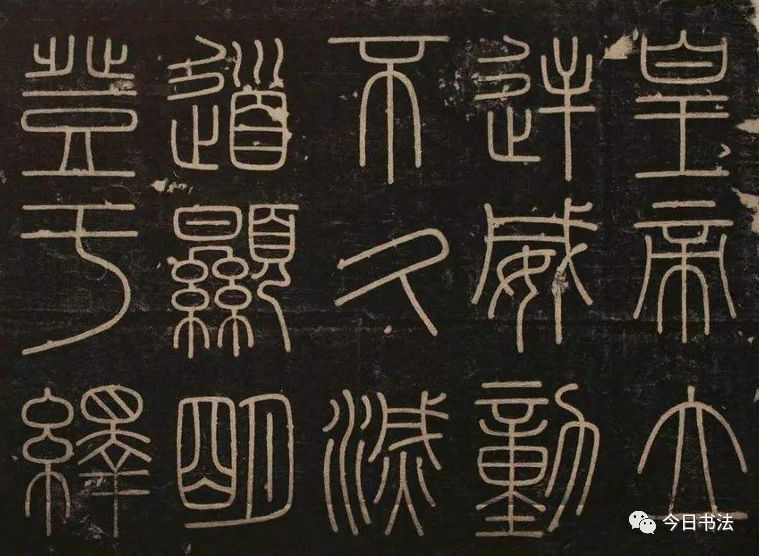 皇帝立
逆威動
不久滅
道顯明
登于繹
今日书法